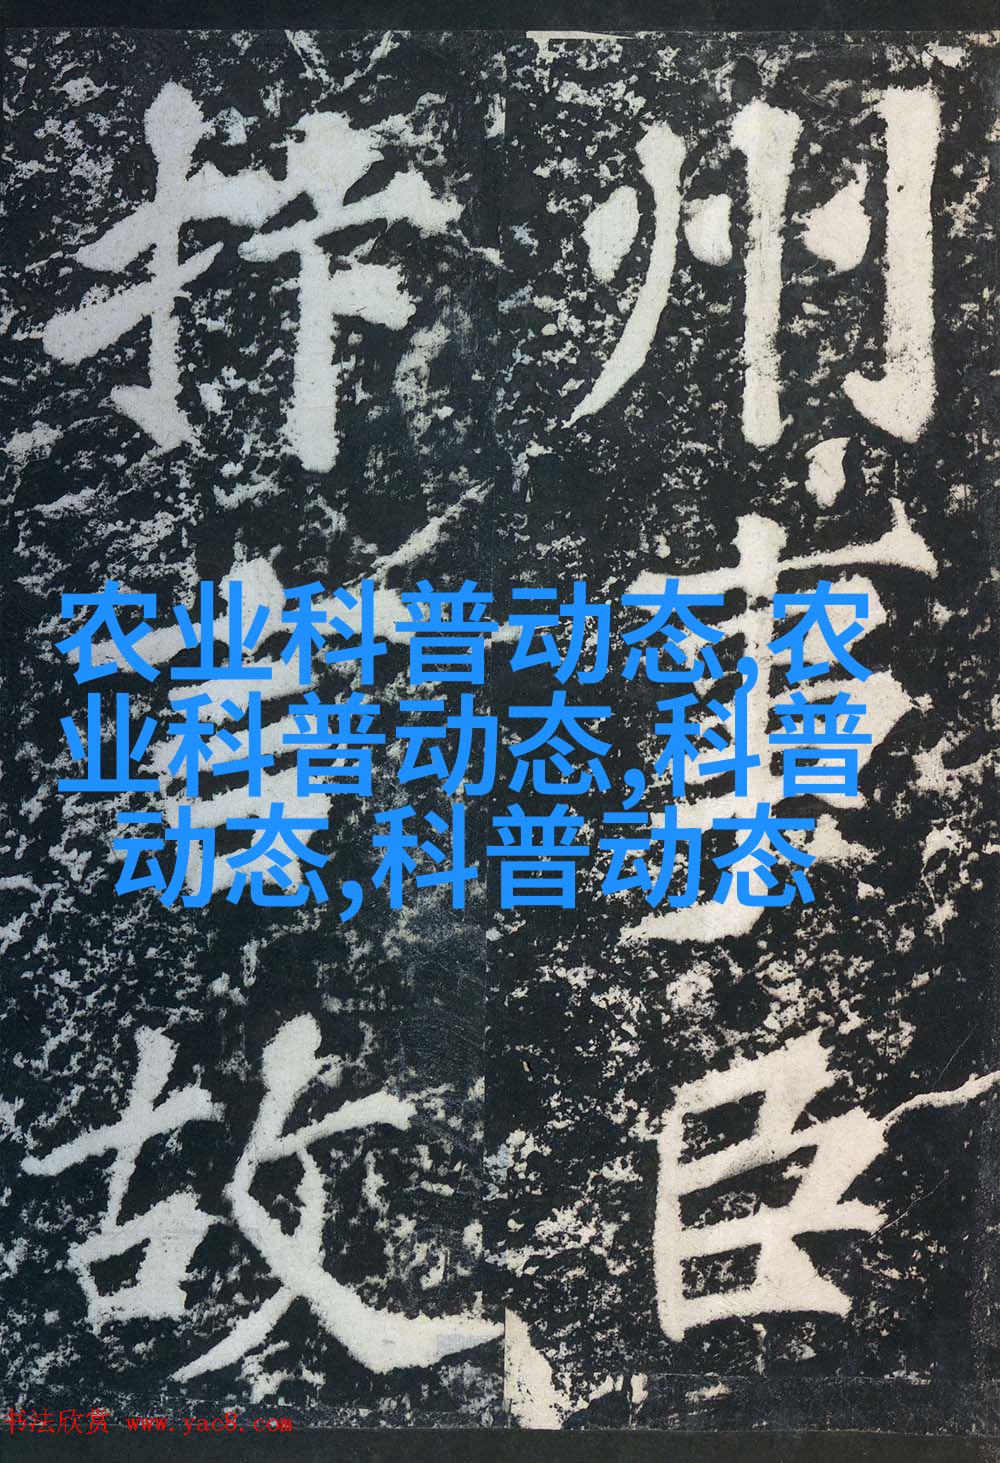 州事臣
故
农业科普动态,农
业科普动态,科普
动态,科普动态
书法欣赏 www.yac8.com